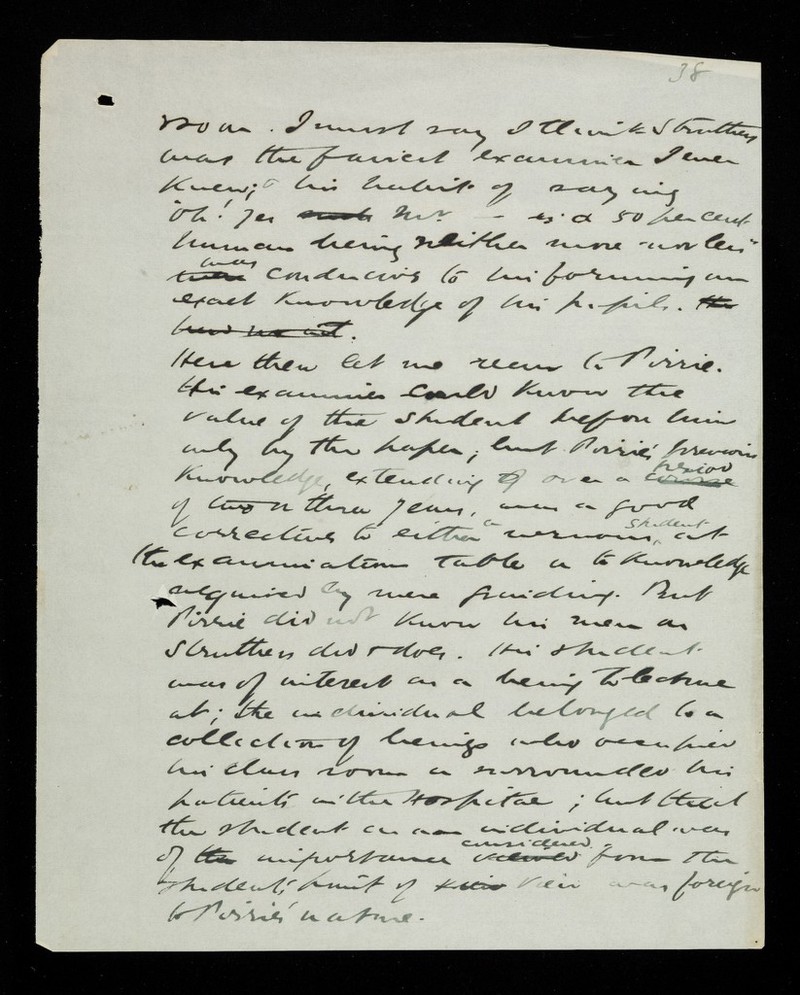 38
room. I must say I think Struthers
was the fairest examiner I ever
knew; & his habit of saying
"oh! yes Mr. — is a 50 per cent
human being neither more nor less"
was conducive to his forming an
exact knowledge of his pupils. the
.
Here then let me recur to Pirrie.
His examiner could know the
value of the student before him
only by the paper; but Pirrie's previous
knowledge, extending over a course period
of two or three years, was a good
corrective to either a nervous student, at
the examination table or to knowledge
acquired by mere grinding. But
Pirrie did not know his men as
Struthers did & does. His student
was of interest as a being to lecture
at; the individual belonged to a
collection of beings who occupied
his class room or surrounded his
patients in the Hospital; but that
the student as an individual was
of the importance considered from the
student's point of view was foreign
to Pirrie's nature.